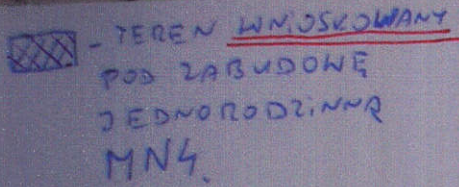 - TEREN WNIOSKOWANY
POD ZABUDOWĘ
JEDNORODZINNĄ
MN4.